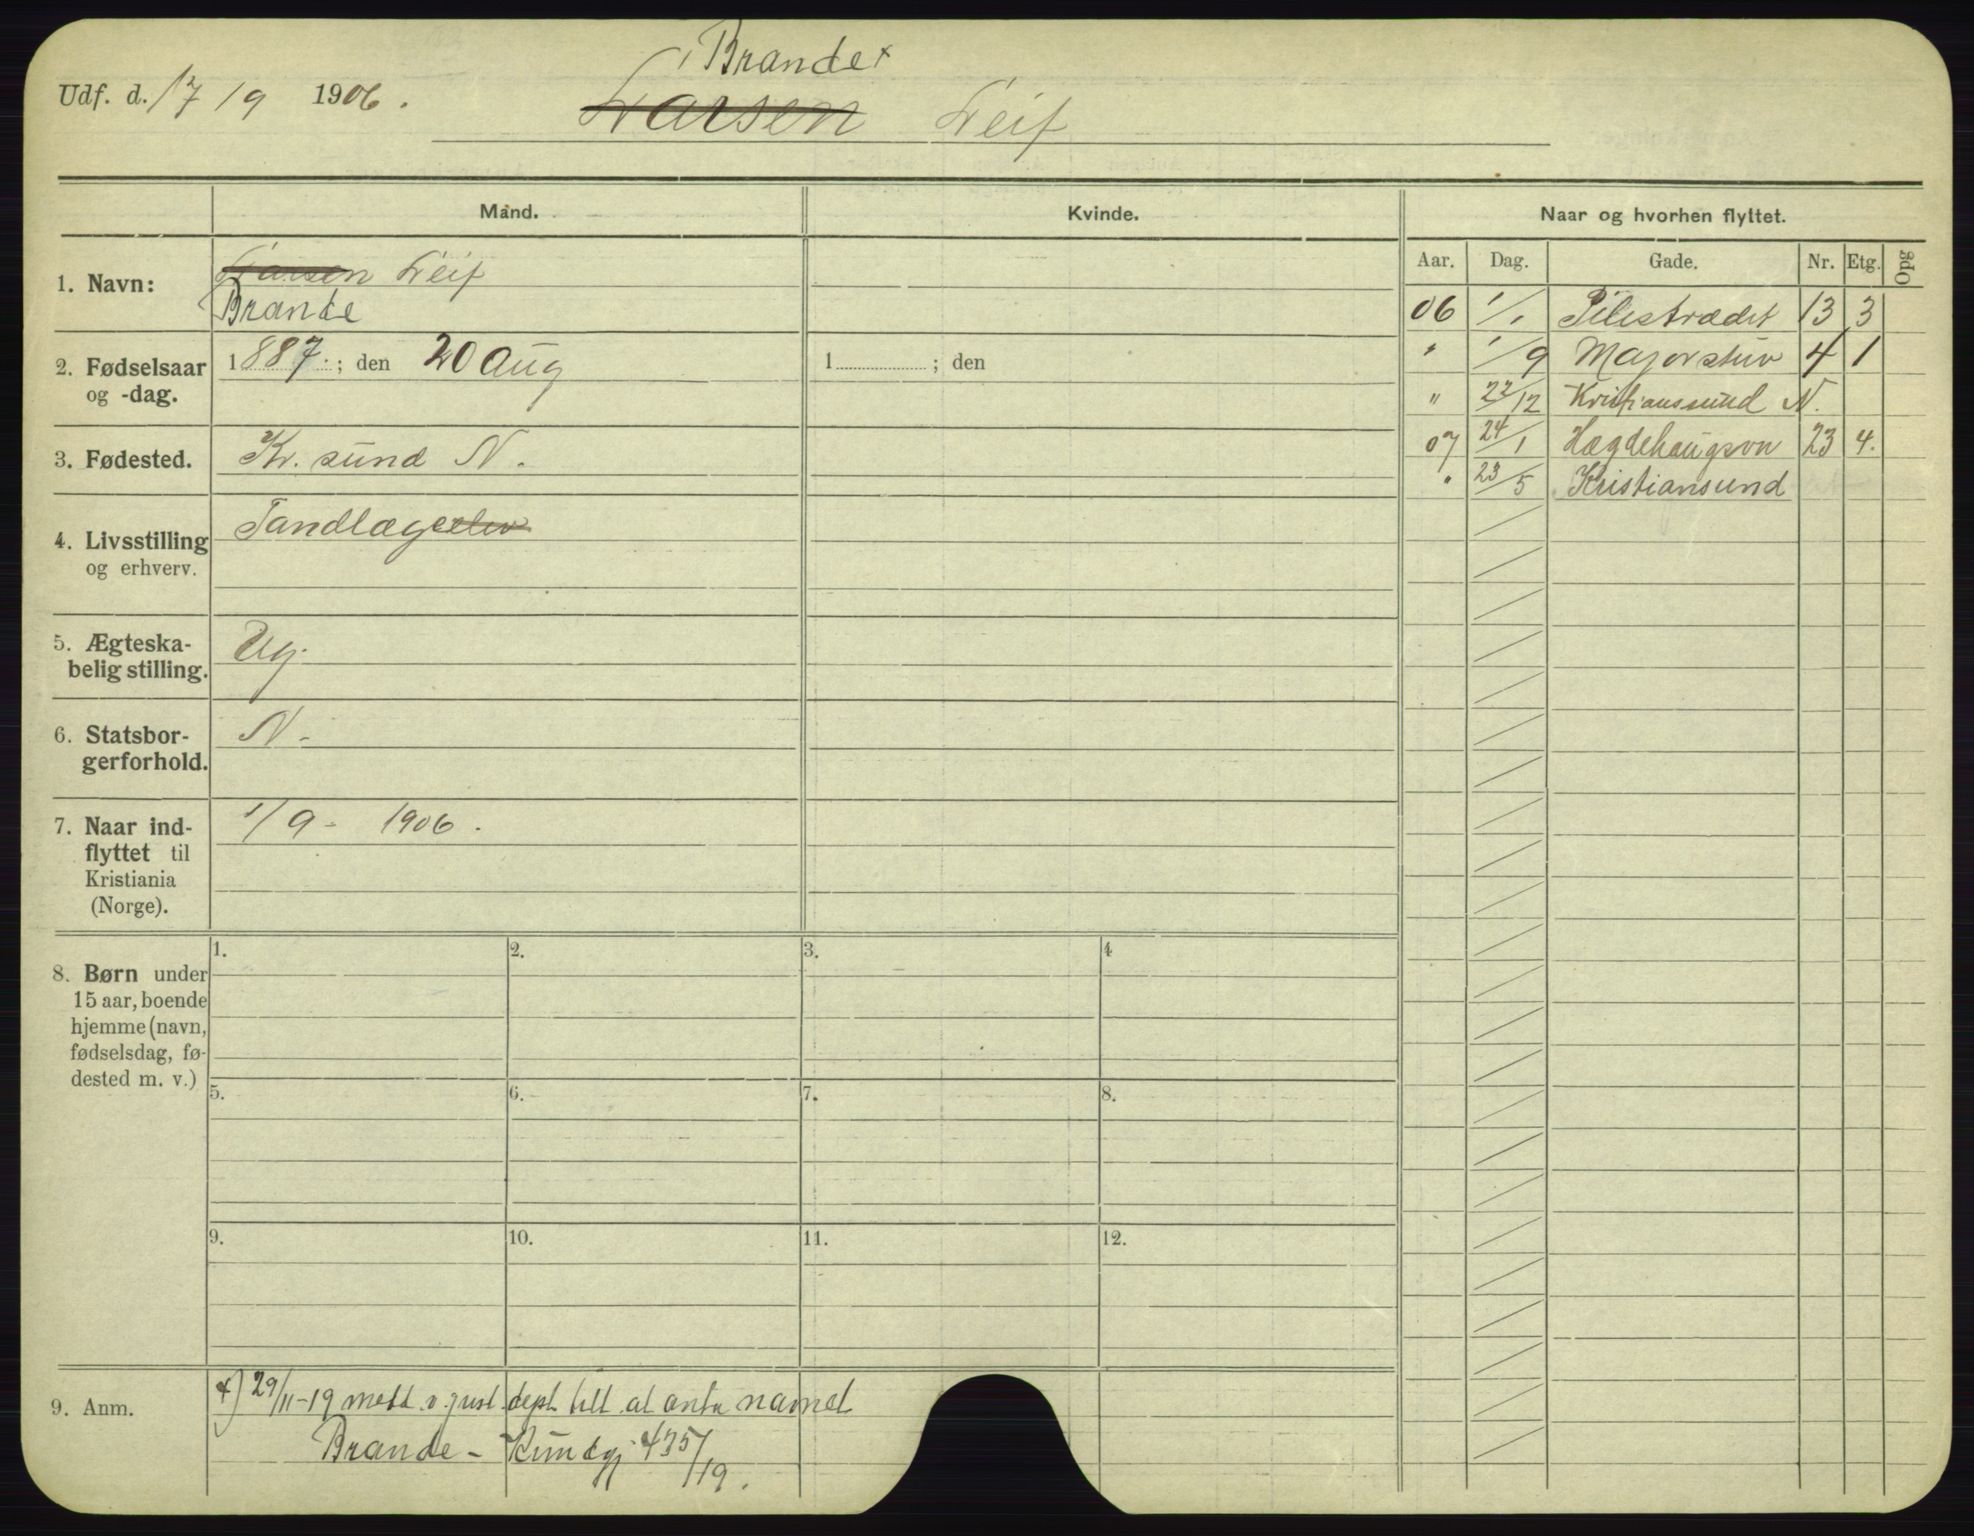 Brande x
Udf. d. 17/9 1906.
Larsen Leif
Mand.
Kvinde.
Naar og hvorhen flyttet.
Aar. Dag. Gade. Nr. Etg. Opg
1. Navn: Larsen Leif
Brande
06 1/1 Pilestrædet 13 3
2. Fødselsaar 1887.; den 20 Aug
og -dag.
1 ; den
" 1/9 Majorstuv 4 1
" 22/12 Kristianssund N.
3. Fødested. Kr. sund N.
07 24/1 Hægdehaugsvn 23 4.
" 23/5 Kristiansund
4. Livsstilling Tandlægeelev
og erhverv.
5. Ægteska- Ug.
belig stilling.
6. Statsbor- N.-
gerforhold.
7. Naar ind- 1/9- 1906.
flyttet til
Kristiania
(Norge).
8. Børn under
15 aar, boende
hjemme (navn,
fødselsdag, fø-
dested m. v.)
1. 2. 3. 4
5. 6. 7. 8.
9. 10. 11. 12.
9. Anm. x) 29/11-19 medd. v. just. dept. till. at anta navnet
Brande - Kundgj 435/19.